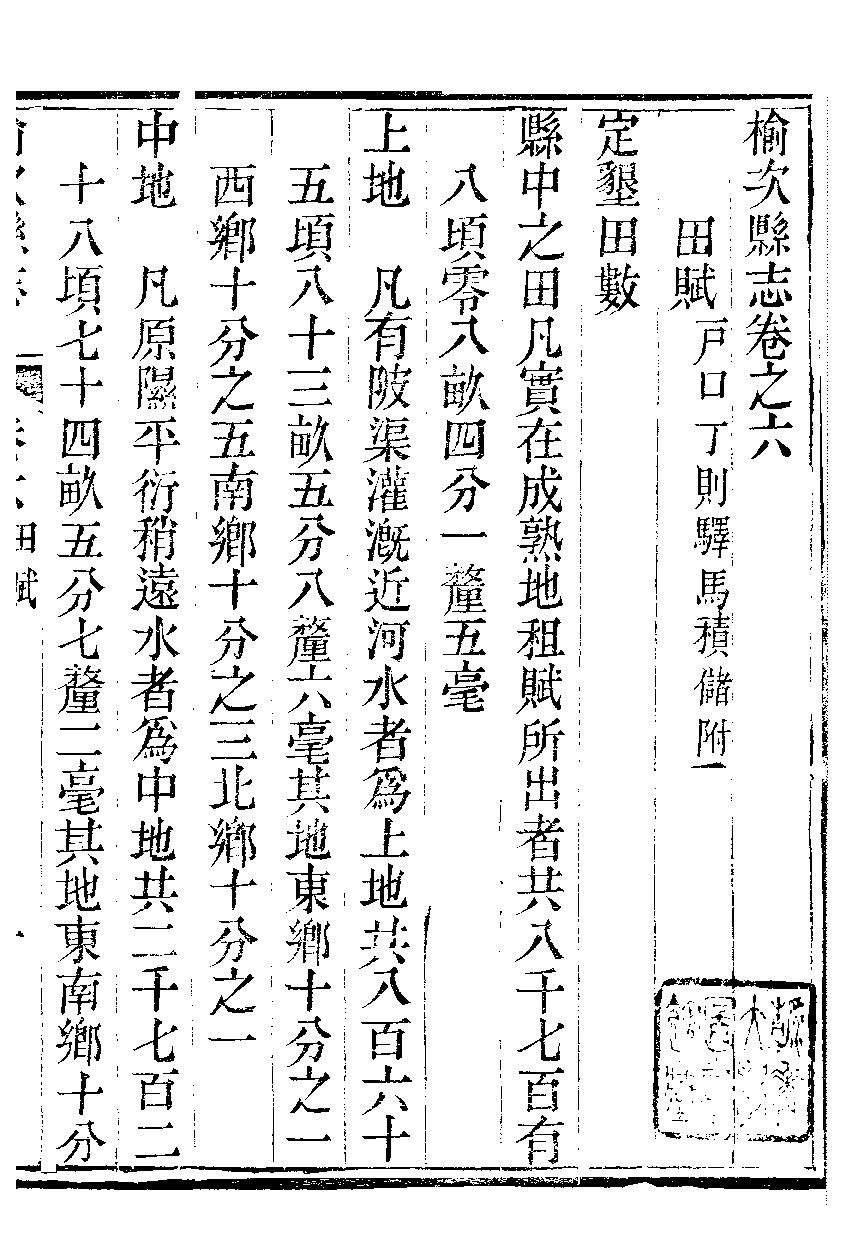 榆次縣志卷之六
田賦 戸口丁則驛馬積儲附
定墾田數
縣中之田凡實在成熟地租賦所出者共八千七百有
八頃零八畝四分一釐五毫
上地 凡有陂渠灌溉近河水者爲上地共八百六十
五頃八十三畝五分八釐六毫其地東鄉十分之一
西鄉十分之五南鄉十分之三北鄉十分之一
中地 凡原隰平衍稍遠水者爲中地共二千七百二
十八頃七十四畝五分七釐二毫其地東南鄉十分
田賦